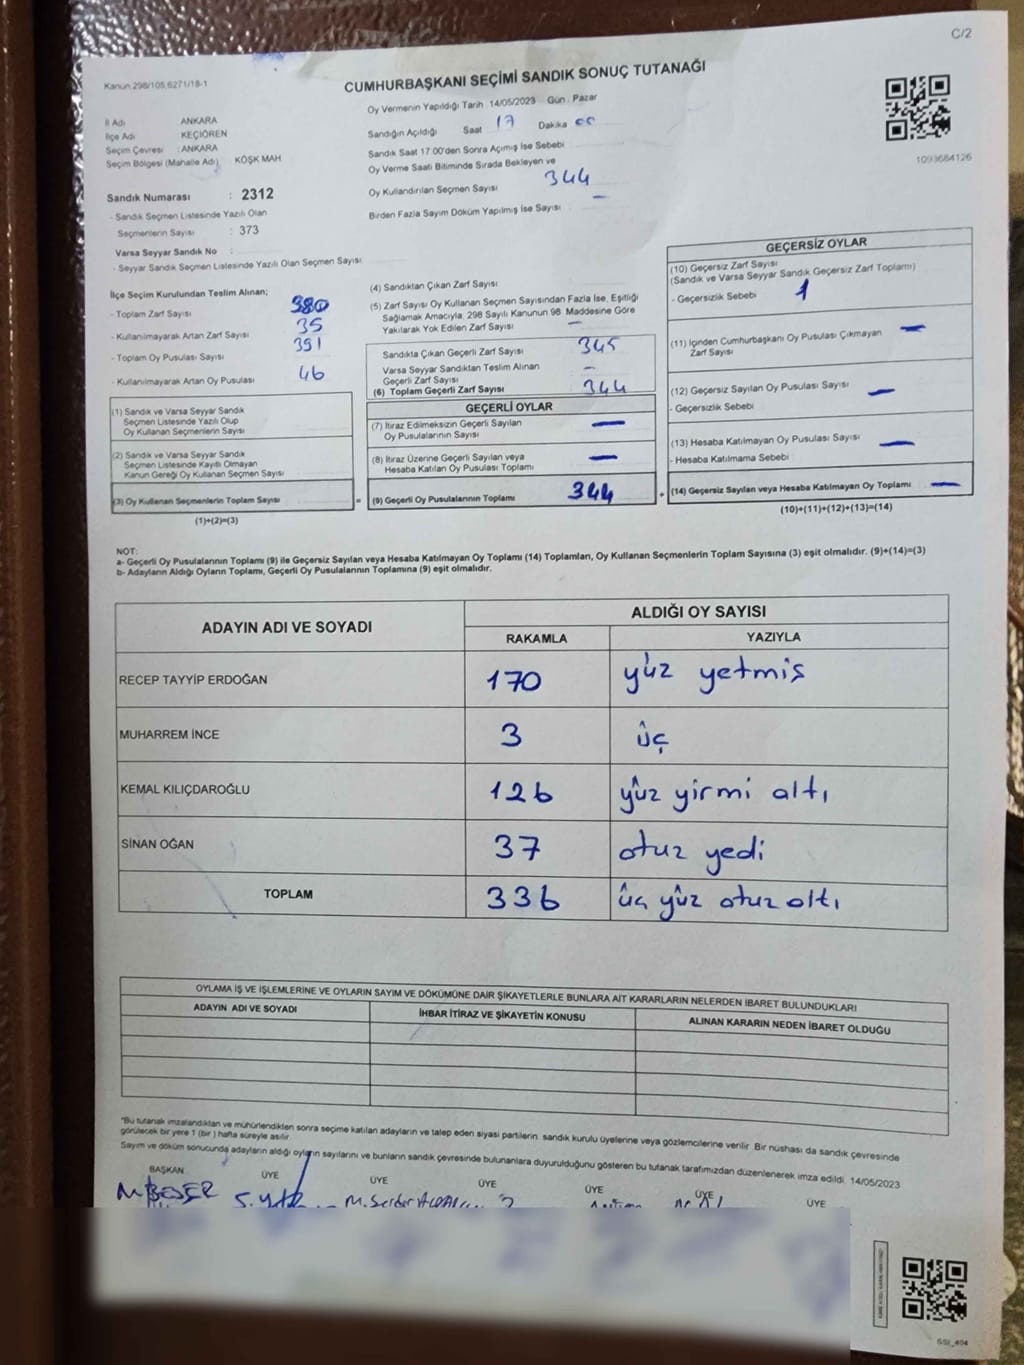 C/2
Kanun 298/105 6271/18-1
CUMHURBAŞKANI SEÇİMİ SANDIK SONUÇ TUTANAĞI
Oy Vermenin Yapıldığı Tarih 14/05/2023 Gün : Pazar
İl Adı ANKARA
İlçe Adı KEÇİÖREN
Seçim Çevresi : ANKARA
Seçim Bölgesi (Mahalle Adı) KÖŞK MAH
Sandık Numarası : 2312
- Sandık Seçmen Listesinde Yazılı Olan
Seçmenlerin Sayısı : 373
Varsa Seyyar Sandık No :
- Seyyar Sandık Seçmen Listesinde Yazılı Olan Seçmen Sayısı
Sandığın Açıldığı Saat 17 Dakika 00
Sandık Saat 17 00'den Sonra Açılmış İse Sebebi
Oy Verme Saati Bitiminde Sırada Bekleyen ve
Oy Kullandırılan Seçmen Sayısı 344
Birden Fazla Sayım Döküm Yapılmış İse Sayısı –
1093684126
İlçe Seçim Kurulundan Teslim Alınan;
- Toplam Zarf Sayısı 380
- Kullanılmayarak Artan Zarf Sayısı 35
- Toplam Oy Pusulası Sayısı 391
- Kullanılmayarak Artan Oy Pusulası 46
(1) Sandık ve Varsa Seyyar Sandık
Seçmen Listesinde Yazılı Olup
Oy Kullanan Seçmenlerin Sayısı
(2) Sandık ve Varsa Seyyar Sandık
Seçmen Listesinde Kayıtlı Olmayan
Kanun Gereği Oy Kullanan Seçmen Sayısı
(3) Oy Kullanan Seçmenlerin Toplam Sayısı =
(1)+(2)=(3)
(4) Sandıktan Çıkan Zarf Sayısı
(5) Zarf Sayısı Oy Kullanan Seçmen Sayısından Fazla İse, Eşitliği
Sağlamak Amacıyla, 298 Sayılı Kanunun 98. Maddesine Göre
Yakılarak Yok Edilen Zarf Sayısı –
Sandıkta Çıkan Geçerli Zarf Sayısı 345
Varsa Seyyar Sandıktan Teslim Alınan
Geçerli Zarf Sayısı –
(6) Toplam Geçerli Zarf Sayısı 344
GEÇERLİ OYLAR
(7) İtiraz Edilmeksizin Geçerli Sayılan
Oy Pusulalarının Sayısı –
(8) İtiraz Üzerine Geçerli Sayılan veya
Hesaba Katılan Oy Pusulası Toplamı –
(9) Geçerli Oy Pusulalarının Toplamı 344 +
GEÇERSİZ OYLAR
(10) Geçersiz Zarf Sayısı
(Sandık ve Varsa Seyyar Sandık Geçersiz Zarf Toplamı)
- Geçersizlik Sebebi 1
(11) İçinden Cumhurbaşkanı Oy Pusulası Çıkmayan –
Zarf Sayısı
(12) Geçersiz Sayılan Oy Pusulası Sayısı –
- Geçersizlik Sebebi
(13) Hesaba Katılmayan Oy Pusulası Sayısı –
- Hesaba Katılmama Sebebi
(14) Geçersiz Sayılan veya Hesaba Katılmayan Oy Toplamı –
(10)+(11)+(12)+(13)=(14)
NOT:
a- Geçerli Oy Pusulalarının Toplamı (9) ile Geçersiz Sayılan veya Hesaba Katılmayan Oy Toplamı (14) Toplamları, Oy Kullanan Seçmenlerin Toplam Sayısına (3) eşit olmalıdır. (9)+(14)=(3)
b- Adayların Aldığı Oyların Toplamı, Geçerli Oy Pusulalarının Toplamına (9) eşit olmalıdır.
ADAYIN ADI VE SOYADI ALDIĞI OY SAYISI
RAKAMLA YAZIYLA
RECEP TAYYİP ERDOĞAN 170 yüz yetmis
MUHARREM İNCE 3 üç
KEMAL KILIÇDAROĞLU 126 yüz yirmi altı
SİNAN OĞAN 37 otuz yedi
TOPLAM 336 üç yüz otuz altı
OYLAMA İŞ VE İŞLEMLERİNE VE OYLARIN SAYIM VE DÖKÜMÜNE DAİR ŞİKAYETLERLE BUNLARA AİT KARARLARIN NELERDEN İBARET BULUNDUKLARI
ADAYIN ADI VE SOYADI İHBAR İTİRAZ VE ŞİKAYETİN KONUSU ALINAN KARARIN NEDEN İBARET OLDUĞU
"Bu tutanak imzalandıktan ve mühürlendikten sonra seçime katılan adayların ve talep eden siyasi partilerin sandık kurulu üyelerine veya gözlemcilerine verilir. Bir nüshası da sandık çevresinde
görülecek bir yere 1 (bir) hafta süreyle asılır.
Sayım ve döküm sonucunda adayların aldığı oyların sayılarını ve bunların sandık çevresinde bulunanlara duyurulduğunu gösteren bu tutanak tarafımızdan düzenlenerek imza edildi. 14/05/2023
BAŞKAN ÜYE ÜYE ÜYE ÜYE ÜYE ÜYE